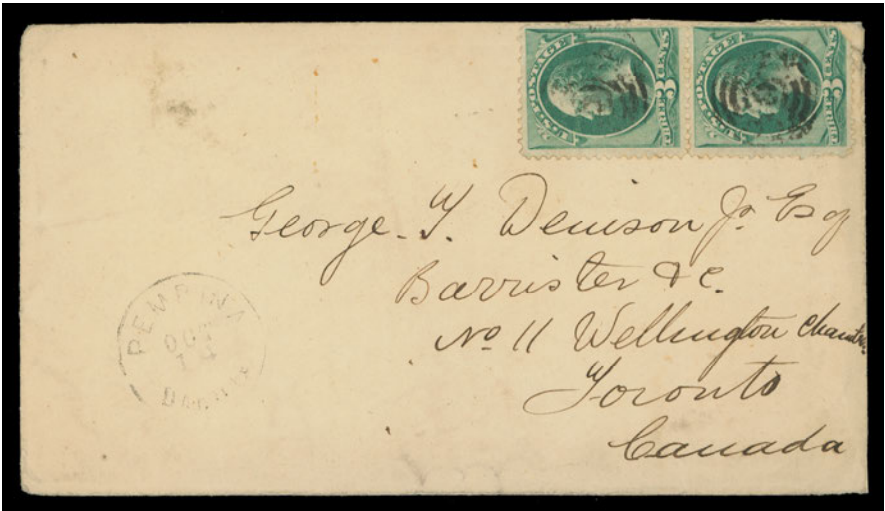 U.S. POSTAGE
THREE 3 CENTS
U.S. POSTAGE
THREE 3 CENTS
George. T. Denison Jr. Esq
Barrister &c.
No 11 Wellington
Toronto
Canada
PEMBINA
OCT
DAKOTA